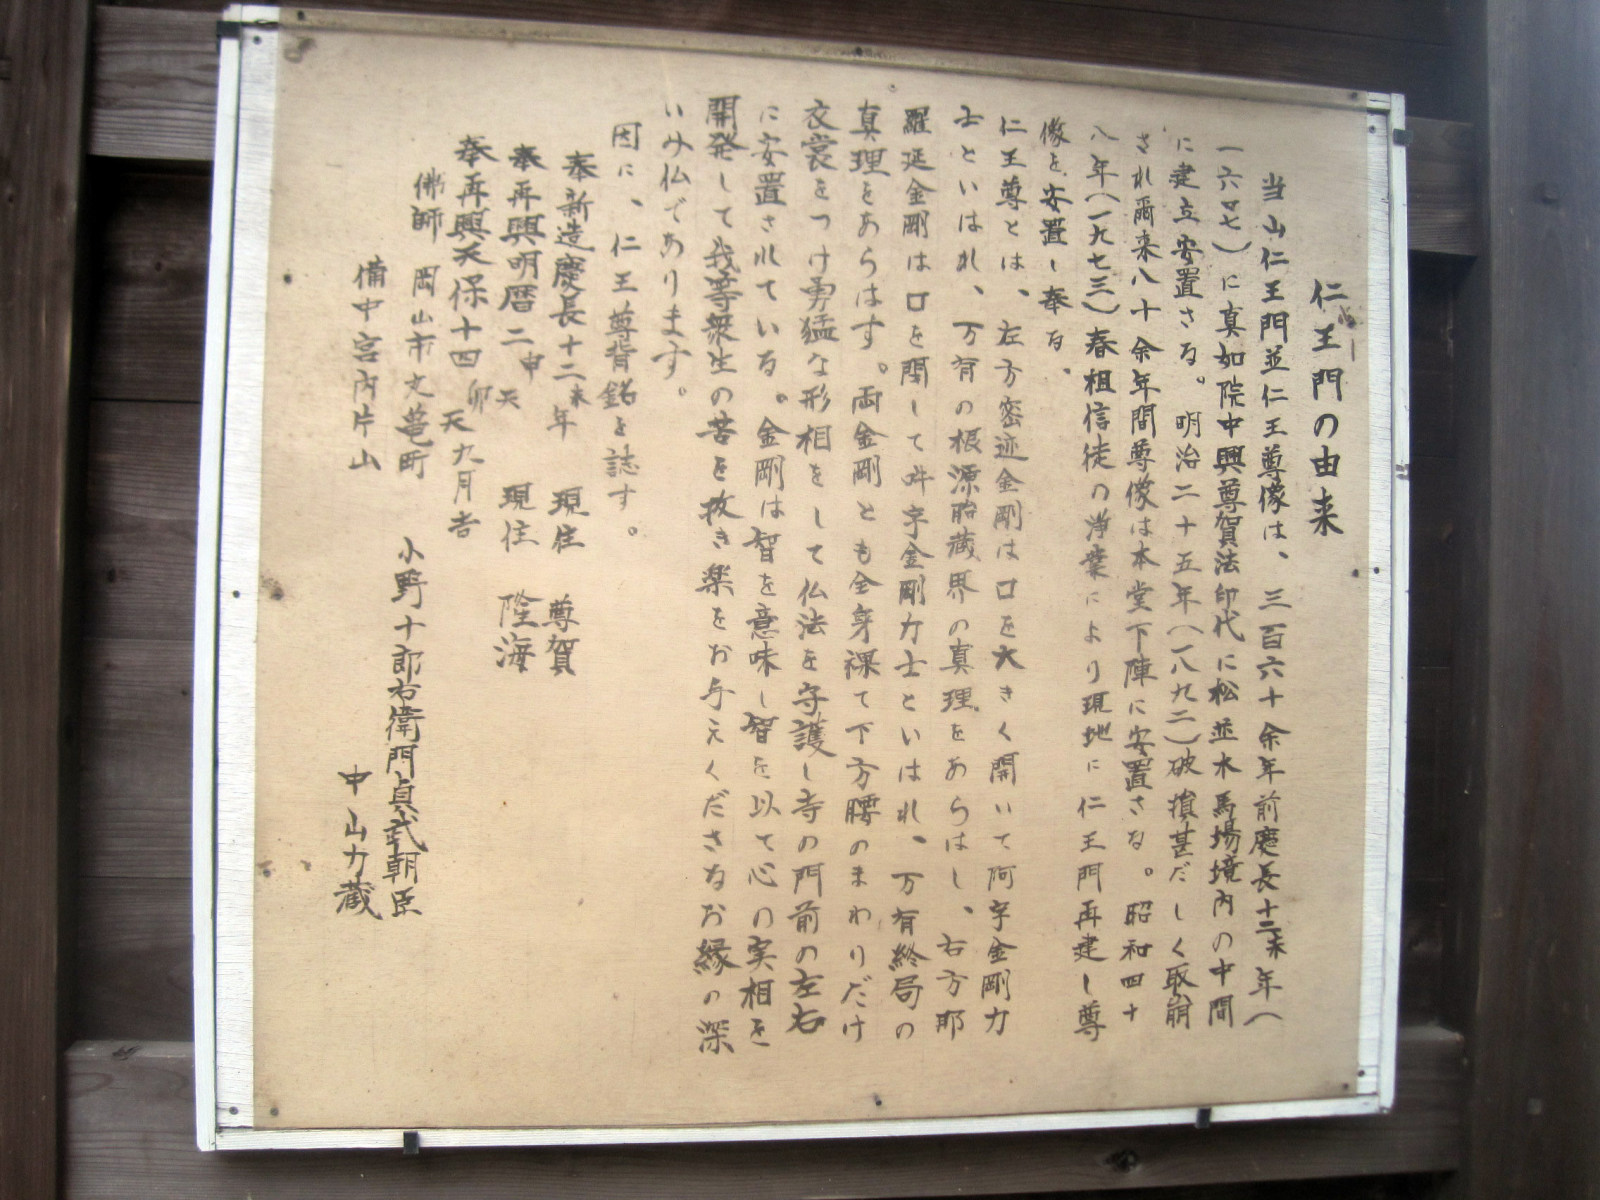 仁王門の由来
当山仁王門並仁王尊像は、三百六十余年前慶長十二未年(
一六〇七)に真如院中興尊賀法印代に松並木馬場境内の中間
に建立安置さる。明治二十五年(一八九二)破損甚だしく取崩
され爾来八十余年間尊像は本堂下陣に安置さる。昭和四十
八年(一九七三)春祖信徒の浄業により現地に仁王門再建し尊
像を安置し奉る、
仁王尊とは、左方密迹金剛は口を大きく開いて阿字金剛力
士といはれ、万有の根源胎蔵界の真理をあらはし、右方那
羅延金剛は口を閉して吽字金剛力士といはれ、万有終局の
真理をあらはす。両金剛とも全身裸て下方腰のまわりだけ
衣裳をつけ勇猛な形相をして仏法を守護し寺の門前の左右
に安置されている。金剛は智を意味し智を以て心の実相を
開発して我等衆生の苦を抜き楽をお与えくださるお縁の深
いみ仏であります。
因に、仁王尊背銘を誌す。
奉新造慶長十二未年 現住 尊賀
奉再興明暦二申天 現住 隆海
奉再興天保十四卯天九月吉
佛師 岡山市丈菴町 小野十郎右衛門貞武朝臣
備中宮内片山 中山力蔵